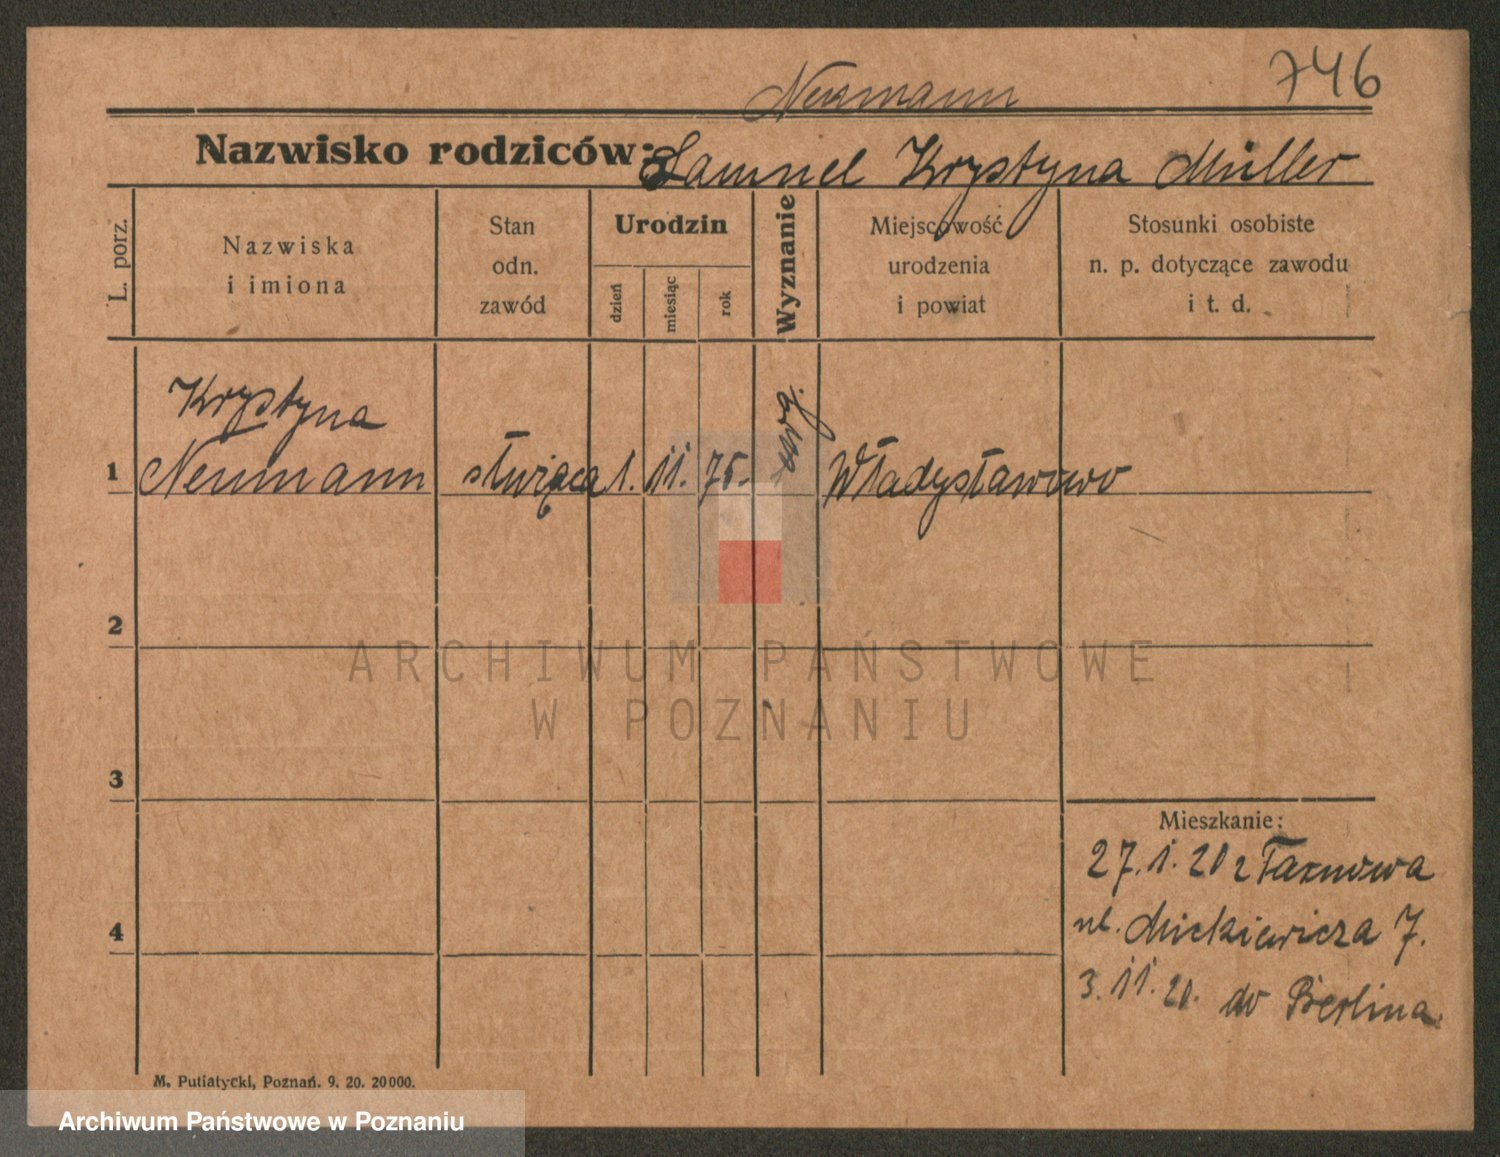 746
Neumann
Nazwisko rodziców: Samuel Krystyna Müller
L. porz.
Nazwiska i imiona
Stan odn. zawód
Urodzin
dzień
miesiąc
rok
Wyznanie
Miejscowość urodzenia i powiat
Stosunki osobiste n. p. dotyczące zawodu i t. d.
Krystyna
1 Neumann służąca 1. 11. 75. Władysławowo
2
3
4
Mieszkanie:
27.1.20 z Tarnowa
ul. Mickiewicza 7.
3.11.20. do Berlina
M. Putiatycki, Poznań. 9. 20. 20000.
ARCHIWUM PAŃSTWOWE
W POZNANIU
Archiwum Państwowe w Poznaniu